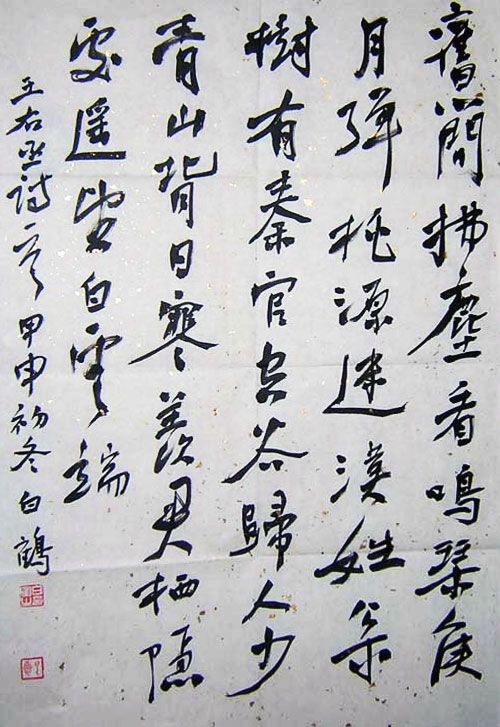 舊簡拂塵看鳴琴候
月彈桃源迷漢姓枀
樹有秦官空谷歸人少
青山背日寒羨君栖隱
處遥望白雲端
王右丞詩一首甲申初冬白鶴